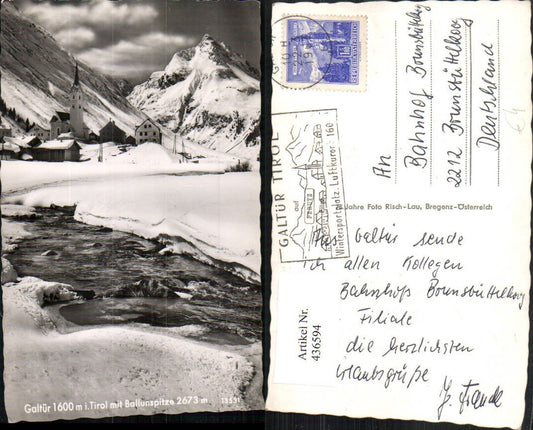 Galtür 1600 m i. Tirol mit Ballunspitze 2673 m
13531
GALTÜR TIROL
auf
Wintersportplatz Luftkurort 160
Jahre Foto Risch-Lau, Bregenz-Österreich
An
Bahnhof Brunsbüttelkoog
2212 Brunsbüttelkoog
Deutschland
Artikel Nr.
436594
Aus Galtür sende
ich allen Kollegen
Bahnhofs Brunsbüttelkoog
Filiale
die herzlichsten
Urlaubsgrüße